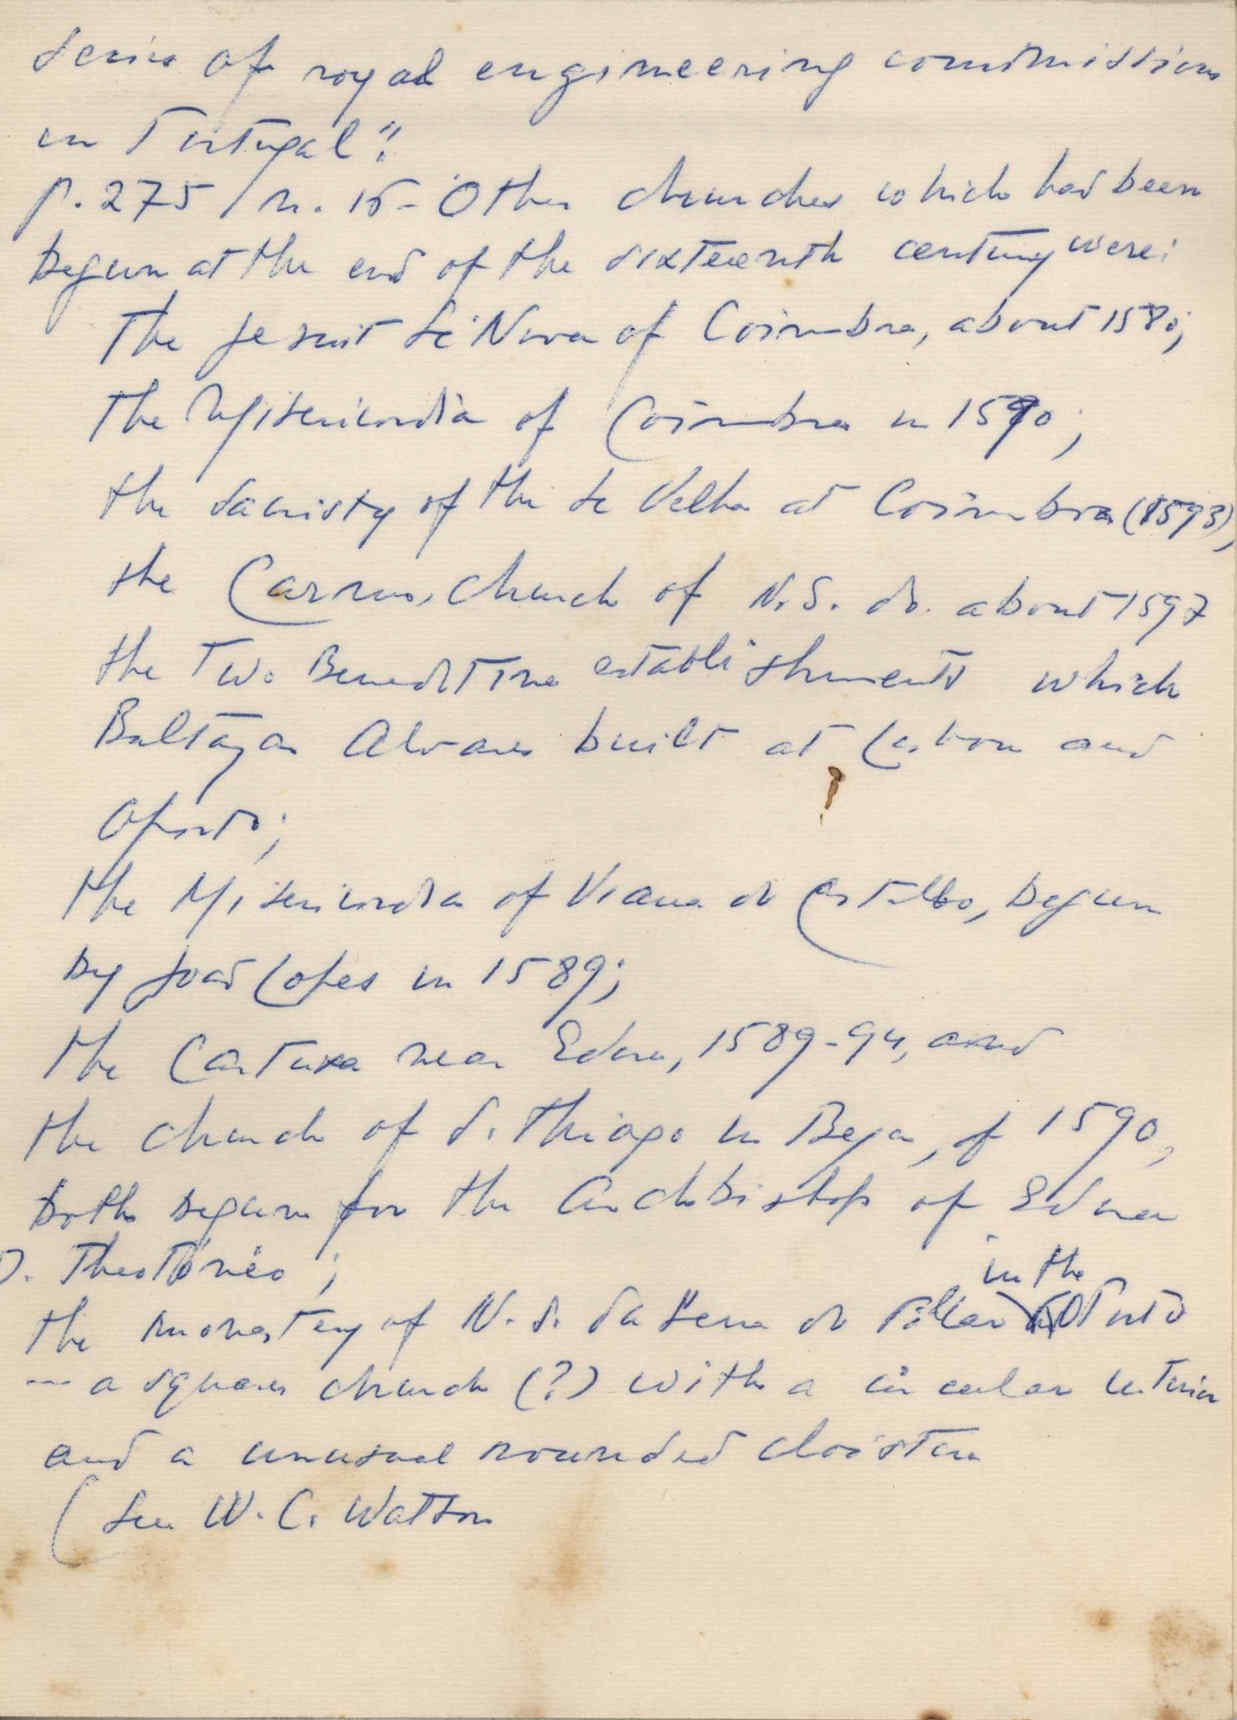 series of royal engineering commissions
in Portugal".
p. 275 / n. 15 - Other churches which had been
begun at the end of the sixteenth century were:
The Jesuit Sé Nova of Coimbra, about 1580;
the Misericordia of Coimbra in 1590;
the sacristy of the Se Velha at Coimbra (1593),
the Carmo, church of N.S. do. about 1597
the two Benedictine establishments which
Baltazar Alvares built at Lisbon and
Oporto;
the Misericordia of Viana do Castello, begun
by João Lopes in 1589;
the Cartuxa near Evora, 1589-94, and
the church of S. Thiago in Beja, of 1590,
both begun for the Archbishop of Evora
D. Theotonio;
the monastery of N. S. da Serra do Pilar in the Porto
— a square church (?) with a circular interior
and a unusual rounded cloister
(See W. C. Watson